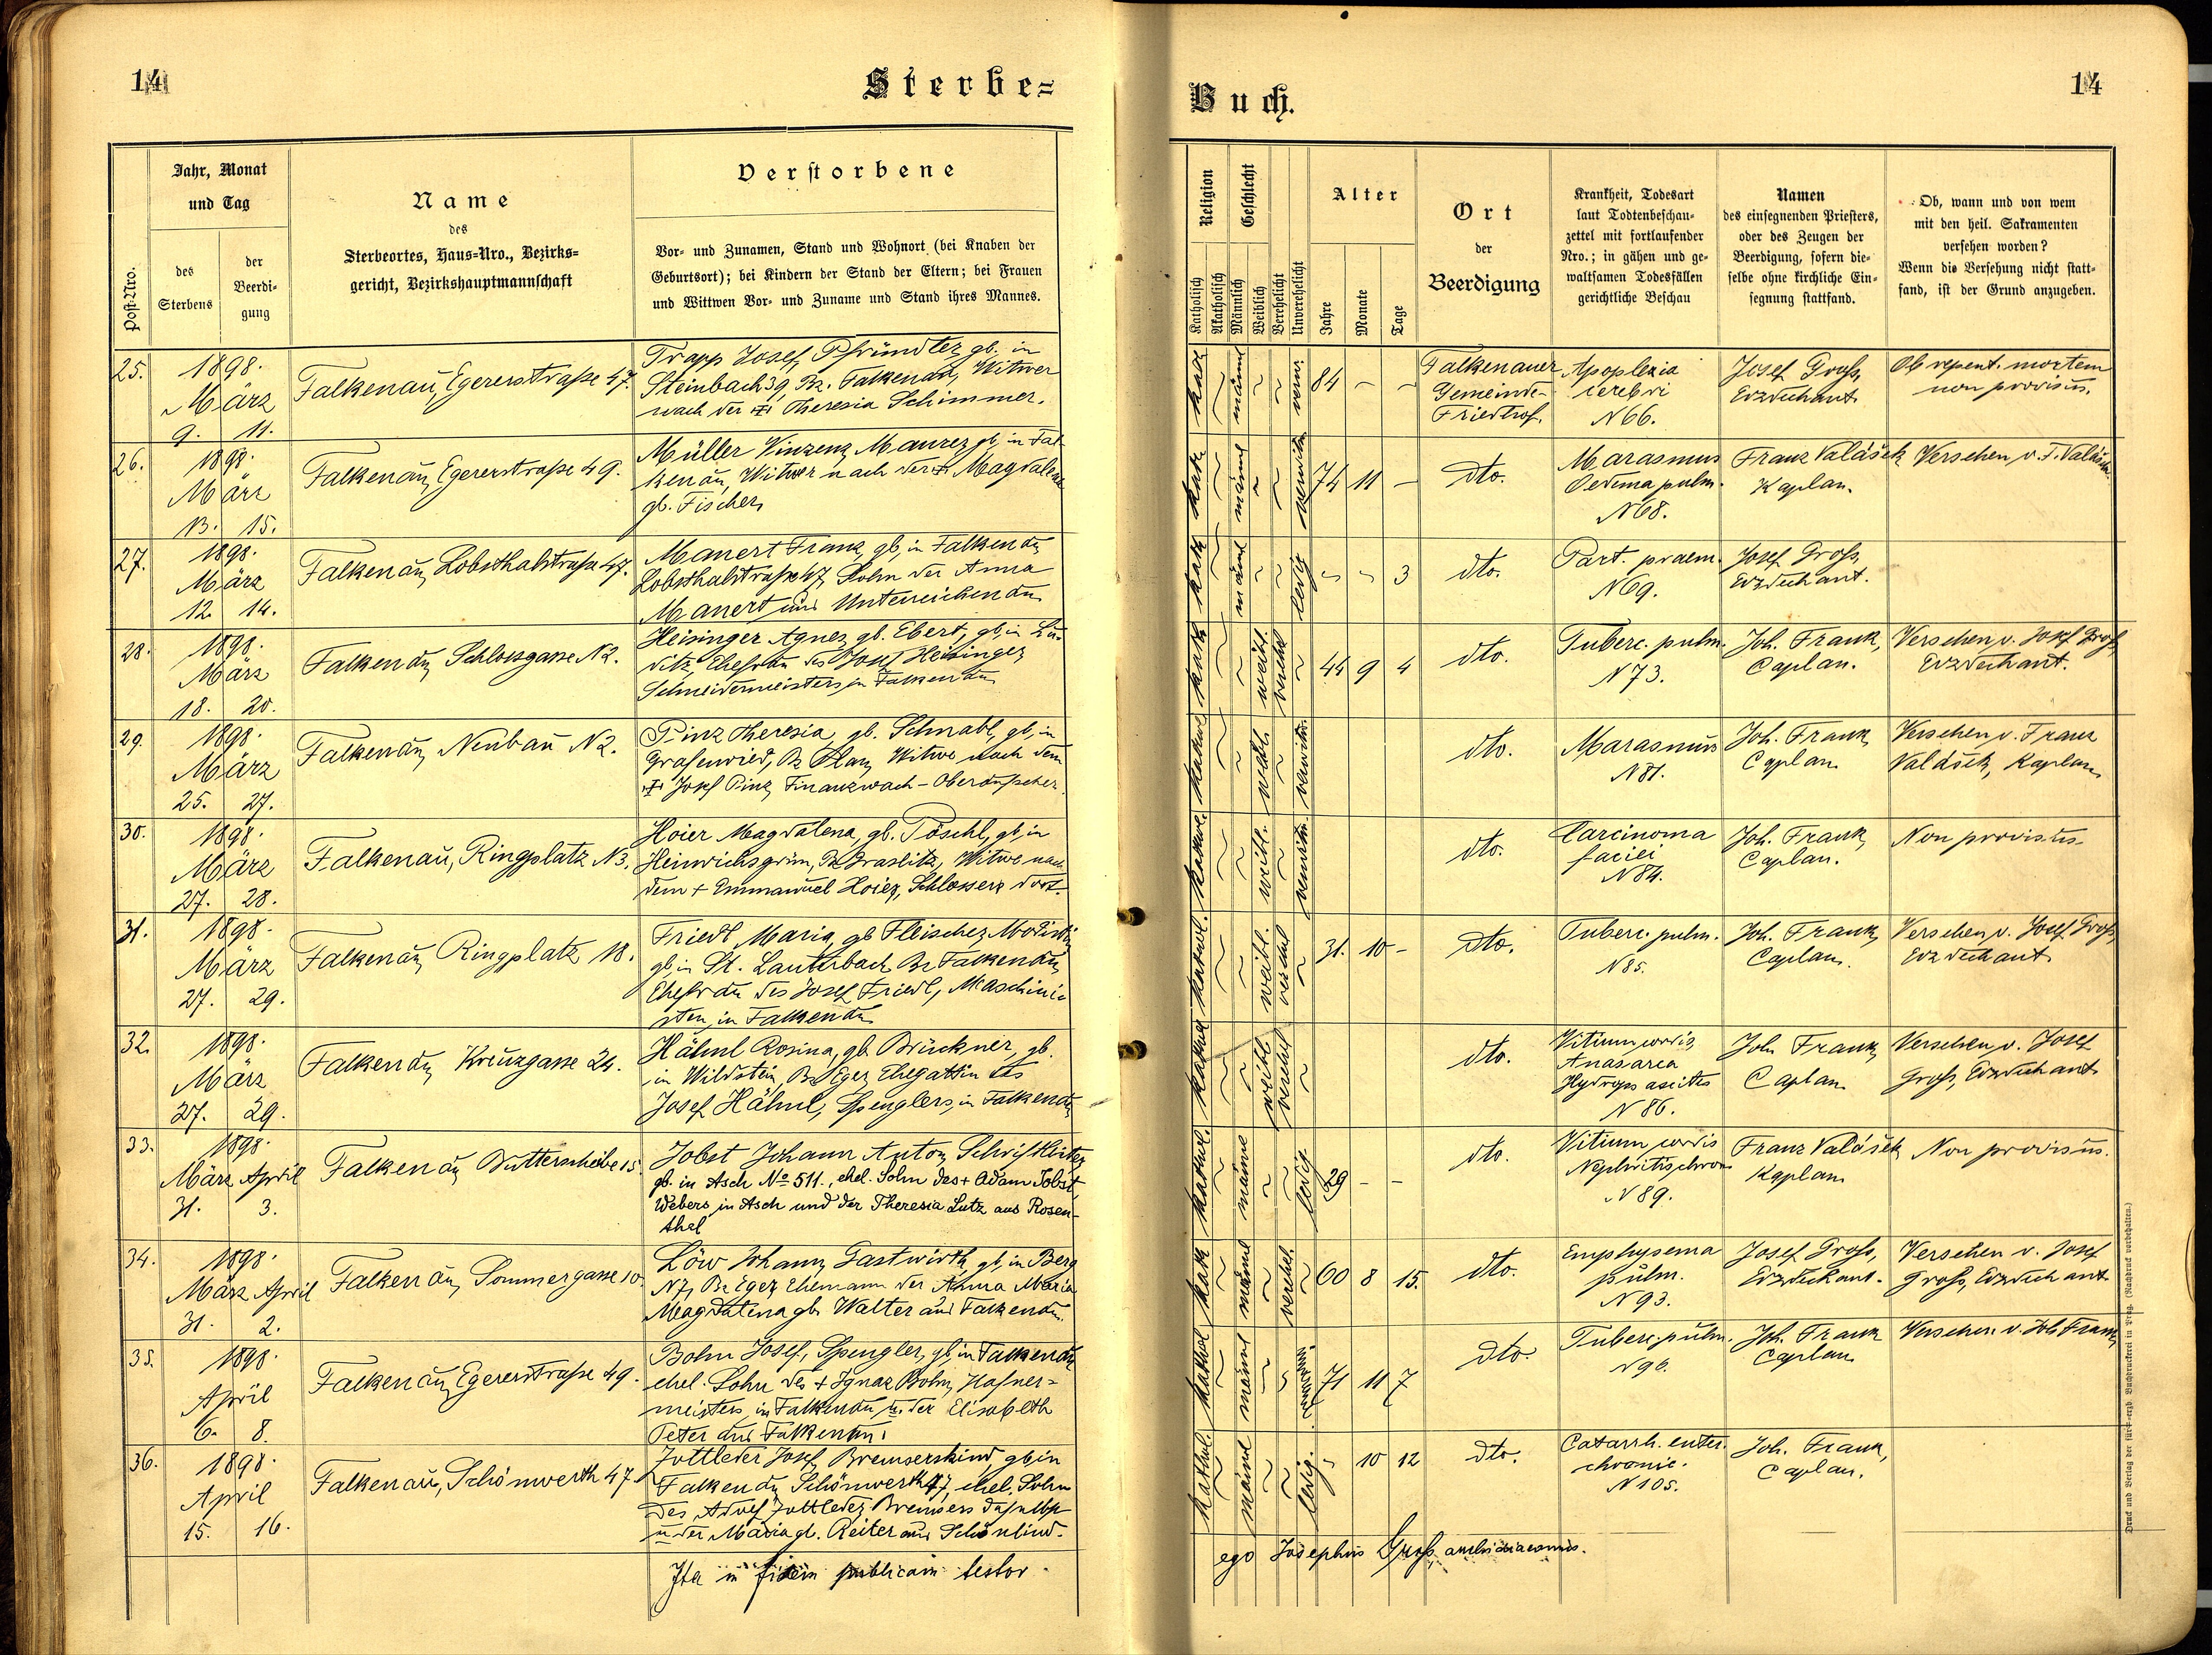 14
Sterbe=
Jahr, Monat
und Tag
Post-Nro.
des
Sterbens
der
Beerdi-
gung
Name
des
Sterbeortes, Haus=Nro., Bezirks=
gericht, Bezirkshauptmannschaft
Verstorbene
Vor- und Zunamen, Stand und Wohnort (bei Knaben der
Geburtsort); bei Kindern der Stand der Eltern; bei Frauen
und Wittwen Vor- und Zuname und Stand ihres Mannes.
25.
1898.
März
9. 11.
Falkenau, Egererstraße 47.
Trapp Josef, Pfründler, gb. in
Steinbach 39, Bz. Falkenau, Witwer
nach der + Theresia Schimmer.
26.
1898.
März
13. 15.
Falkenau, Egererstraße 49.
Müller Vinzenz, Maurer, gb, in Fal-
kenau, Witwer nach der + Magdalena
gb. Fischer,
27.
1898.
März
12. 14.
Falkenau, Lobsthalstraße 47.
Manert Franz, gb, in Falkenau,
Lobsthalstraße 47, Sohn der Anna
Manert aus Unterreichenau
28.
1898.
März
18. 20.
Falkenau, Schlossgasse N2.
Heisinger Agnes, gb. Ebert, gb, in Lu-
ditz, Ehefrau des Josef Heisinger,
Schneidermeisters in Falkenau
29.
1898.
März
25. 27.
Falkenau, Neubau N2.
Pinz Theresia, gb. Schnabl, gb, in
Grafenried, Bz Plan, Witwe nach dem
+ Josef Pinz, Finanzwach-Oberaufseher.
30.
1898.
März
27. 28.
Falkenau, Ringplatz N3.
Hoier Magdalena, gb. Pöschl, gb, in
Heinrichsgrün, Bz Graslitz, Witwe nach
dem + Emmanuel Hoier, Schlossers dort.
31.
1898.
März
27. 29.
Falkenau, Ringplatz 18.
Friedl Maria, gb Fleischer, Modistin,
gb, in St. Lauterbach Bz Falkenau,
Ehefrau des Josef Friedl, Maschini-
sten, in Falkenau
32.
1898.
März
27. 29.
Falkenau, Kreuzgasse 24.
Hähnl Rosina, gb. Brückner, gb.
in Wildstein, Bz Eger, Ehegattin des
Josef Hähnl, Spenglers, in Falkenau,
33.
1898.
März April
31. 3.
Falkenau, Butterscheibe 15.
Jobst Johann Anton, Schriftleiter,
gb. in Asch No 511., ehel. Sohn des + Adam Jobst,
Webers in Asch und der Theresia Lutz aus Rosen-
thal
34.
1898.
März April
31. 2.
Falkenau, Sommergasse 10.
Löw Johann, Gastwirth, gb, in Berg
N7, Bz Eger, Ehemann der Anna Maria
Magdalena gb. Walter aus Falkenau.
35.
1898.
April
6. 8.
Falkenau, Egererstraße 49.
Bohn Josef, Spengler, gb, in Falkenau,
ehel. Sohn des + Ignaz Bohn, Hafner-
meisters in Falkenau u. der Elisabeth
Peter aus Falkenau.
36.
1898.
April
15. 16.
Falkenau, Schönwerth 47.
Jottleder Josef, Bremserskind, gb, in
Falkenau, Schönwerth 47, ehel. Sohn
des Adolf Jottleder, Bremsers daselbst
u der Maria gb. Reiter aus Schönlind.
Ita in fidem publicam testor
14
Buch.
Religion
Katholisch
Akatholisch
Geschlecht
Männlich
Weiblich
Verehelicht
Unverehelicht
Alter
Jahre
Monate
Tage
Ort
der
Beerdigung
Krankheit, Todesart
laut Todtenbeschau-
zettel mit fortlaufender
Nro.; in gähen und ge-
waltsamen Todesfällen
gerichtliche Beschau
Namen
des einsegnenden Priesters,
oder des Zeugen der
Beerdigung, sofern die-
selbe ohne kirchliche Ein-
segnung stattfand.
Ob, wann und von wem
mit den heil. Sakramenten
versehen worden?
Wenn die Versehung nicht statt-
fand, ist der Grund anzugeben.
kath männl verw. 84 - -
Falkenauer
Gemeinde-
Friedhof.
Apoplexia
cerebri
N 66.
Josef Groß,
Erzdechant
Ob repent. mortem
non provisus.
kath männl verwitw 74 11 -
dto.
Marasmus
Oedema pulm.
N 68.
Franz Valášek
Kaplan.
Versehen v. F. Valášek
kath männl ledig 3
dto.
Part. praem.
N 69.
Josef Groß,
Erzdechant.
kath weibl. verehel 44 9 4
dto.
Tuberc. pulm.
N 73.
Joh. Frank,
Caplan.
Versehen v. Josef Groß,
Erzdechant.
kathol weibl. verwitw.
dto.
Marasmus
N 81.
Joh. Frank,
Caplan
Versehen v. Franz
Valášek, Kaplan,
kathol. weibl. verwitw.
dto.
Carcinoma
faciei
N 84.
Joh. Frank,
Caplan.
Non provisus
kathol. weibl. verehel 31. 10 -
dto.
Tuberc. pulm.
N 85.
Joh. Frank,
Caplan.
Versehen v. Josef Groß,
Erzdechant
kathol weibl verehel
dto.
Vitium cordis,
Anasarca
Hydrops ascites
N 86.
Joh Frank,
Caplan
Versehen v. Josef
Groß, Erzdechant
kathol. männl ledig 29 - -
dto.
Vitium cordis
Nephritis chron
N 89.
Franz Valášek
Kaplan
Non provisus.
kath männl verehel. 60 8 15.
dto.
Emphysema
pulm.
N 93.
Josef Groß,
Erzdechant.
Versehen v. Josef
Groß, Erzdechant
kathol männl 71 11 7
dto.
Tuberc. pulm.
N 96.
Joh. Frank
Caplan
Versehen v. Joh Frank,
kathol. männl ledig. 10 12
dto.
Catarrh. enter.
chronic.
N 105.
Joh. Frank,
Caplan.
ego Josephus Groß, archidiaconus.
Druck und Verlag der fürst-erzb. Buchdruckerei in Prag. (Nachdruck vorbehalten.)